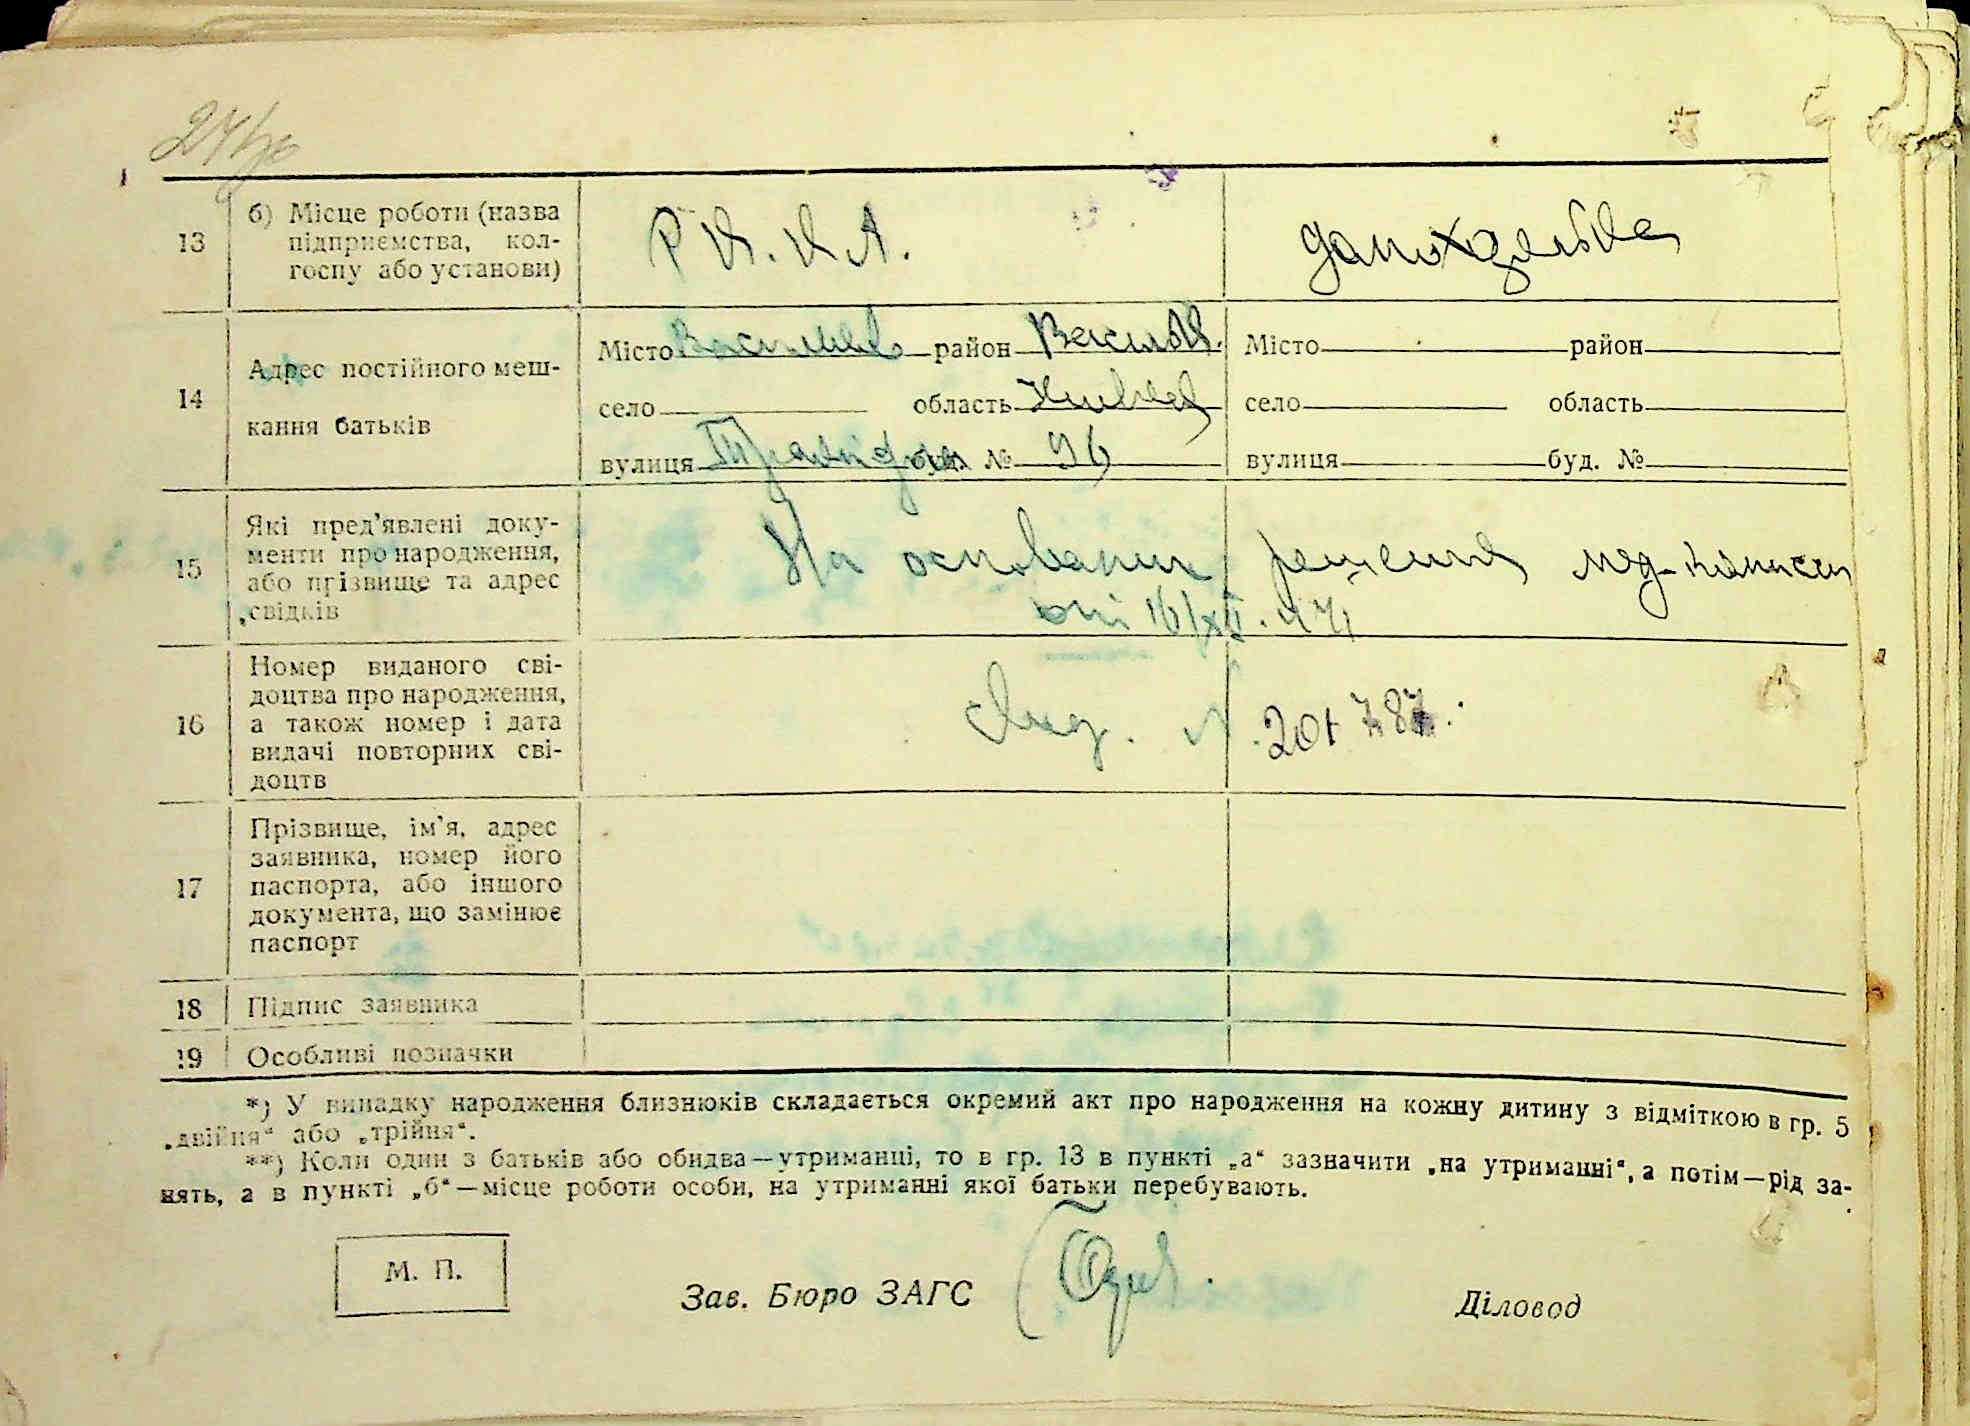 13
б) Місце роботи (назва
підприємства, кол-
госпу або установи)
Р К. К А.
домохозяйка
14
Адрес постійного меш-
кання батьків
Місто Васильків район Васильк.
село область Київська
вулиця буд. № 96
Місто район
село область
вулиця буд. №
15
Які пред'явлені доку-
менти про народження,
або прізвище та адрес
свідків
На основании решения мед-комиссии
от 16/XII. 47
16
Номер виданого сві-
доцтва про народження,
а також номер і дата
видачі повторних сві-
доцтв
N. 201787.
17
Прізвище, ім'я, адрес
заявника, номер його
паспорта, або іншого
документа, що замінює
паспорт
18 Підпис заявника
19 Особливі позначки
*) У випадку народження близнюків складається окремий акт про народження на кожну дитину з відміткою в гр. 5
„двійня“ або „трійня“.
**) Коли один з батьків або обидва—утриманці, то в гр. 13 в пункті „а“ зазначити „на утриманні“, а потім—рід за-
нять, а в пункті „б“—місце роботи особи, на утриманні якої батьки перебувають.
М. П.
Зав. Бюро ЗАГС
Діловод